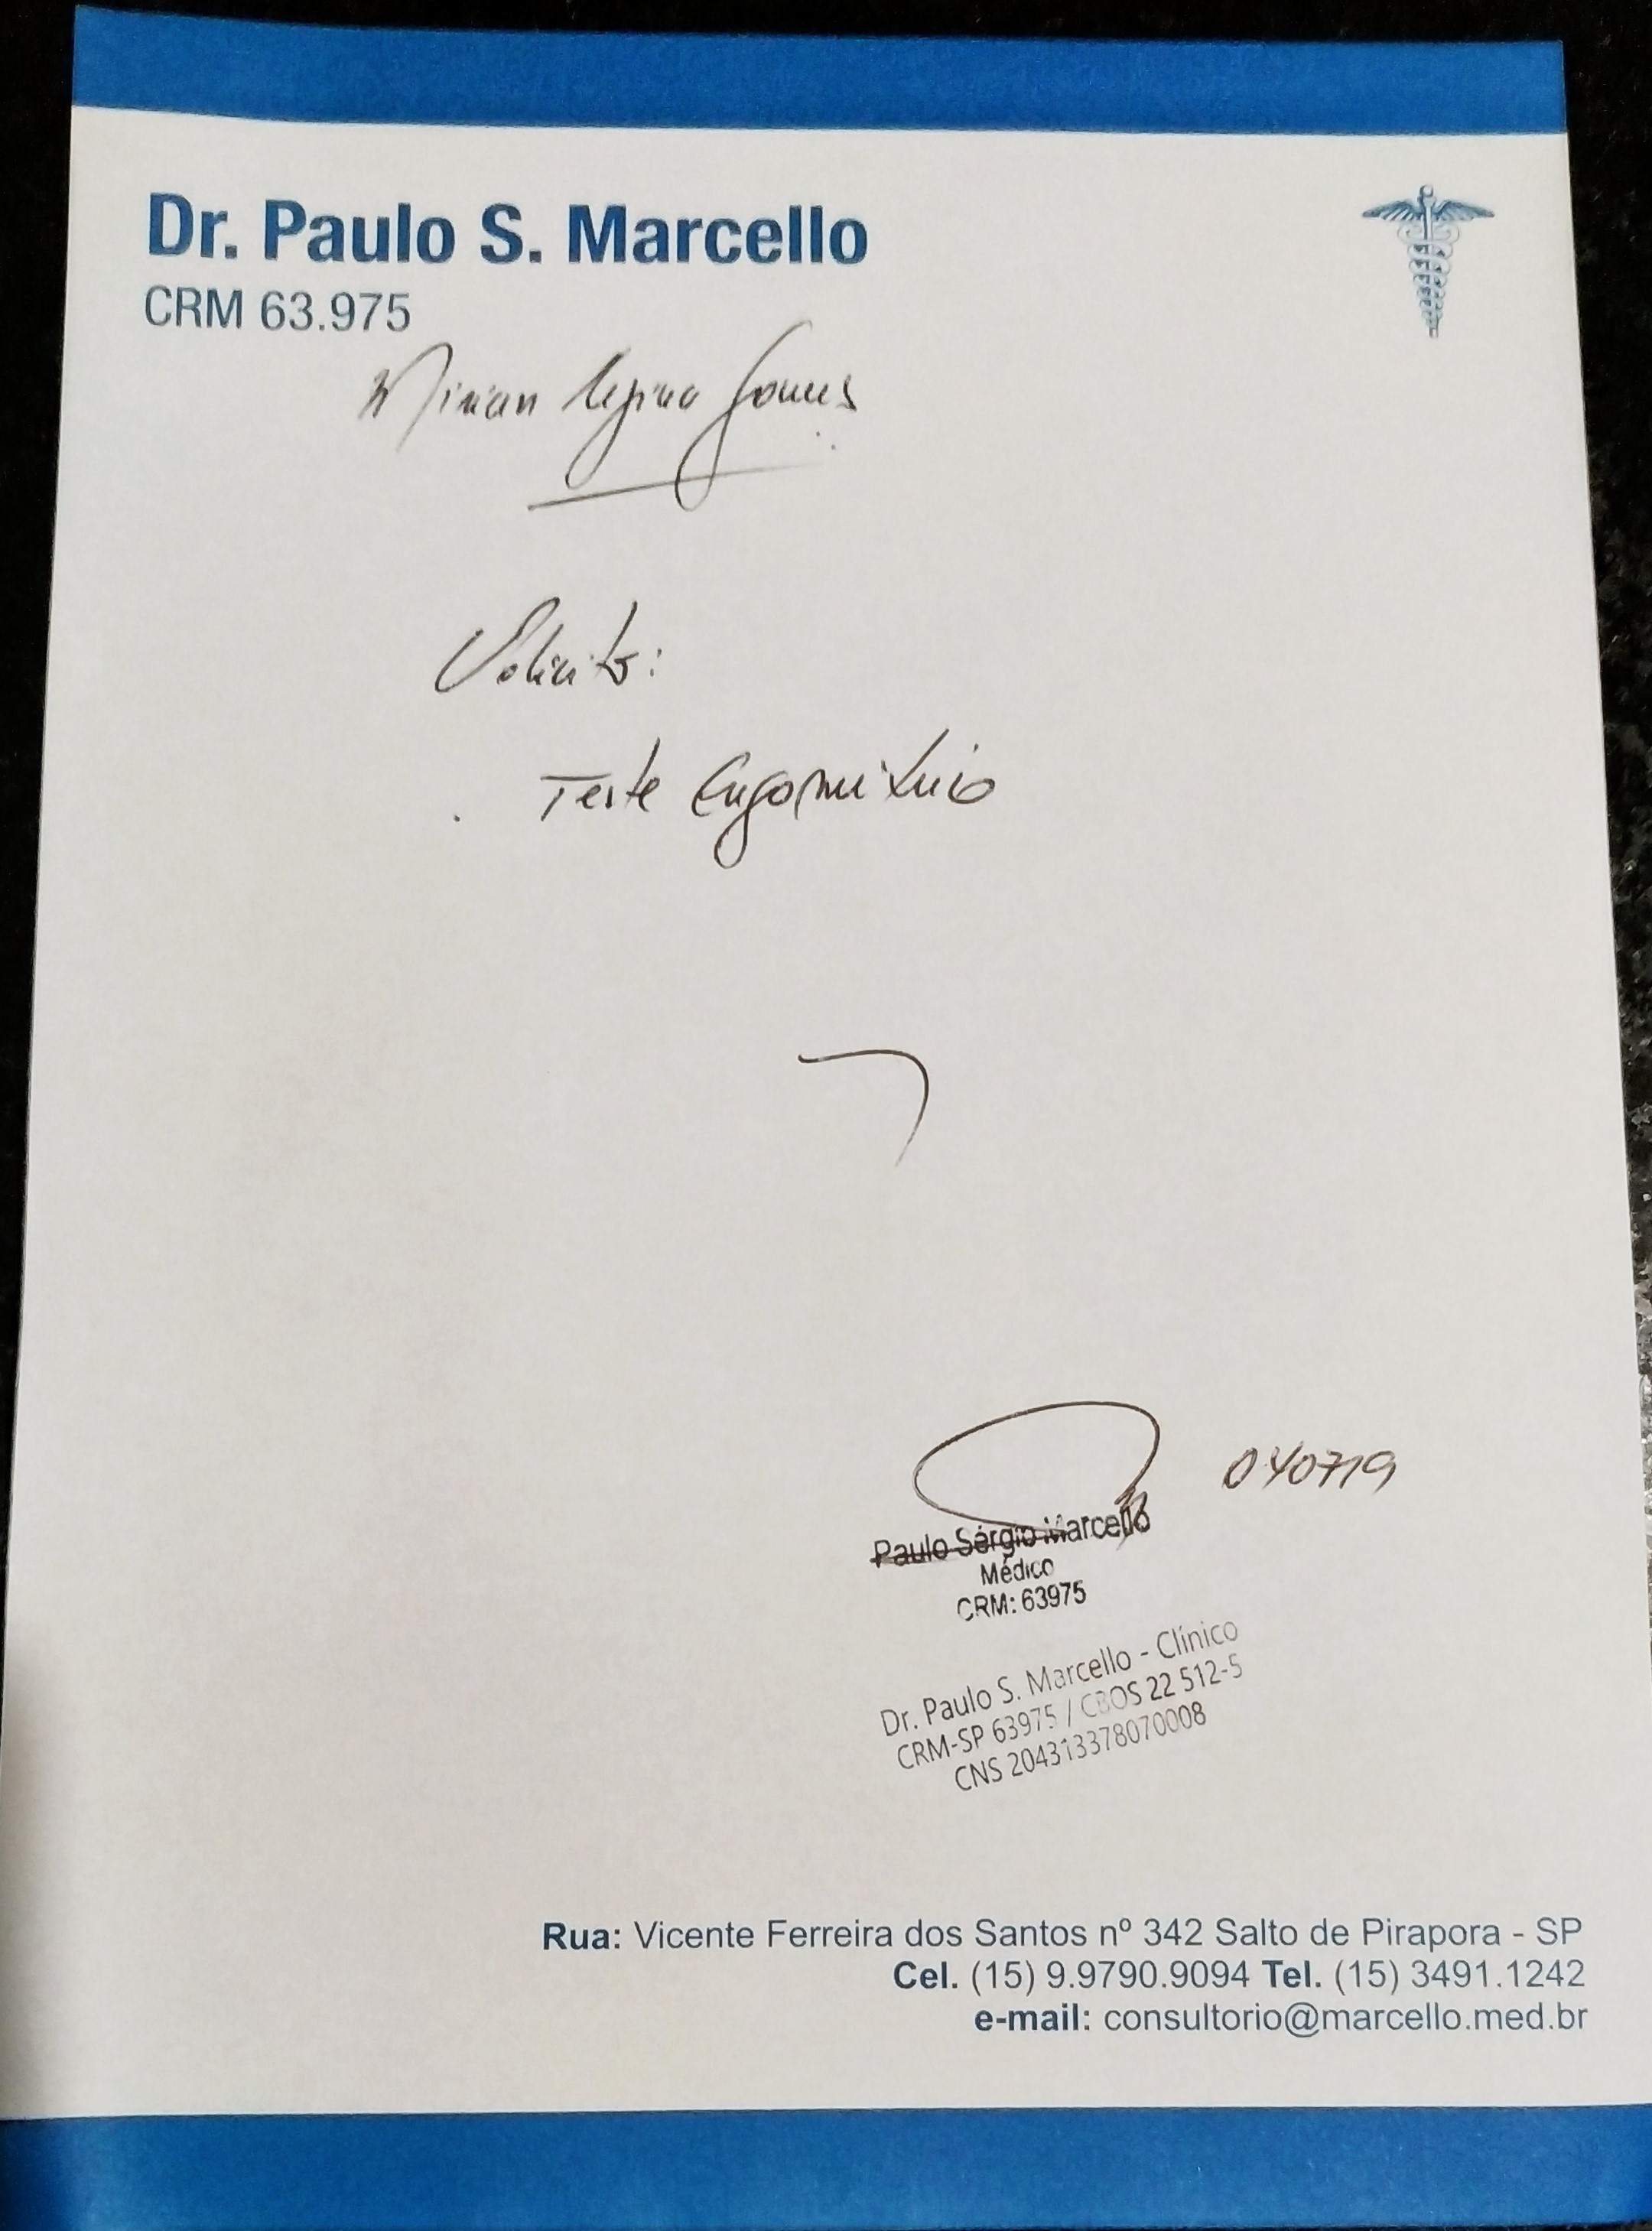 Dr. Paulo S. Marcello
CRM 63.975
Mirian Regina Gomes
Solicito:
Teste Ergométrico
040719
Paulo Sérgio Marcello
Médico
CRM: 63975
Dr. Paulo S. Marcello - Clínico
CRM-SP 63975 / CBOS 22 512-5
CNS 204313378070008
Rua: Vicente Ferreira dos Santos nº 342 Salto de Pirapora - SP
Cel. (15) 9.9790.9094 Tel. (15) 3491.1242
e-mail: consultorio@marcello.med.br